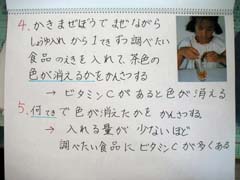 4. かきまぜぼうで まぜながら
しょうゆ入れ から 1てきずつ 調べたい
食品 のえきを入れて、茶色の
色が消えるかを かんさつする
→ ビタミンCが あると色が 消える
5. 何てきで 色が消えたかを かんさつ
→ 入れる量が 少ないほど
調べたい食品に ビタミンCが多くある